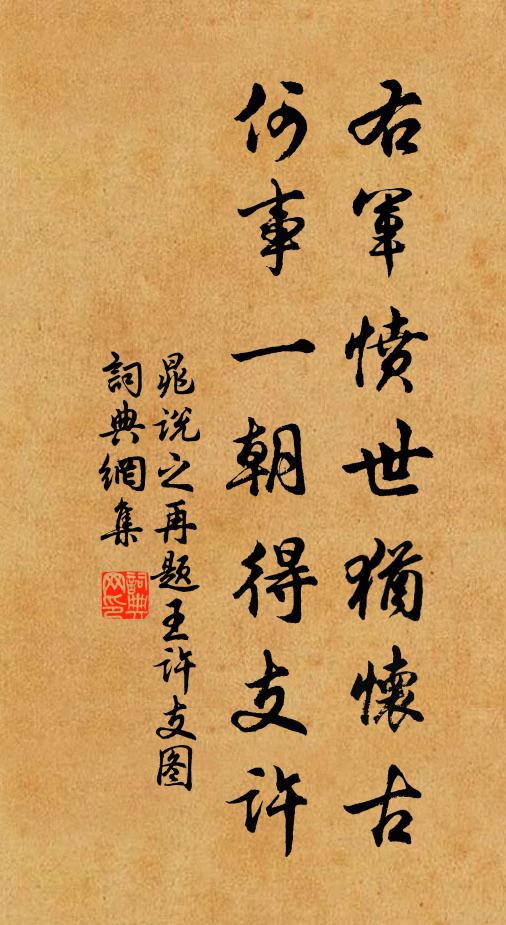 右軍憤世猶懷古
何事一朝得支許
晁說之再题王许支图
詞典網集
詞典
网印